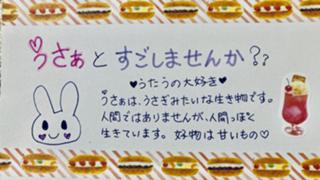 うさぁとすごしませんか??
♥うたうの大好き♥
うさぁは、うさぎみたいな生き物です。
人間ではありませんが、人間っぽく
生きています。好物は甘いもの♡